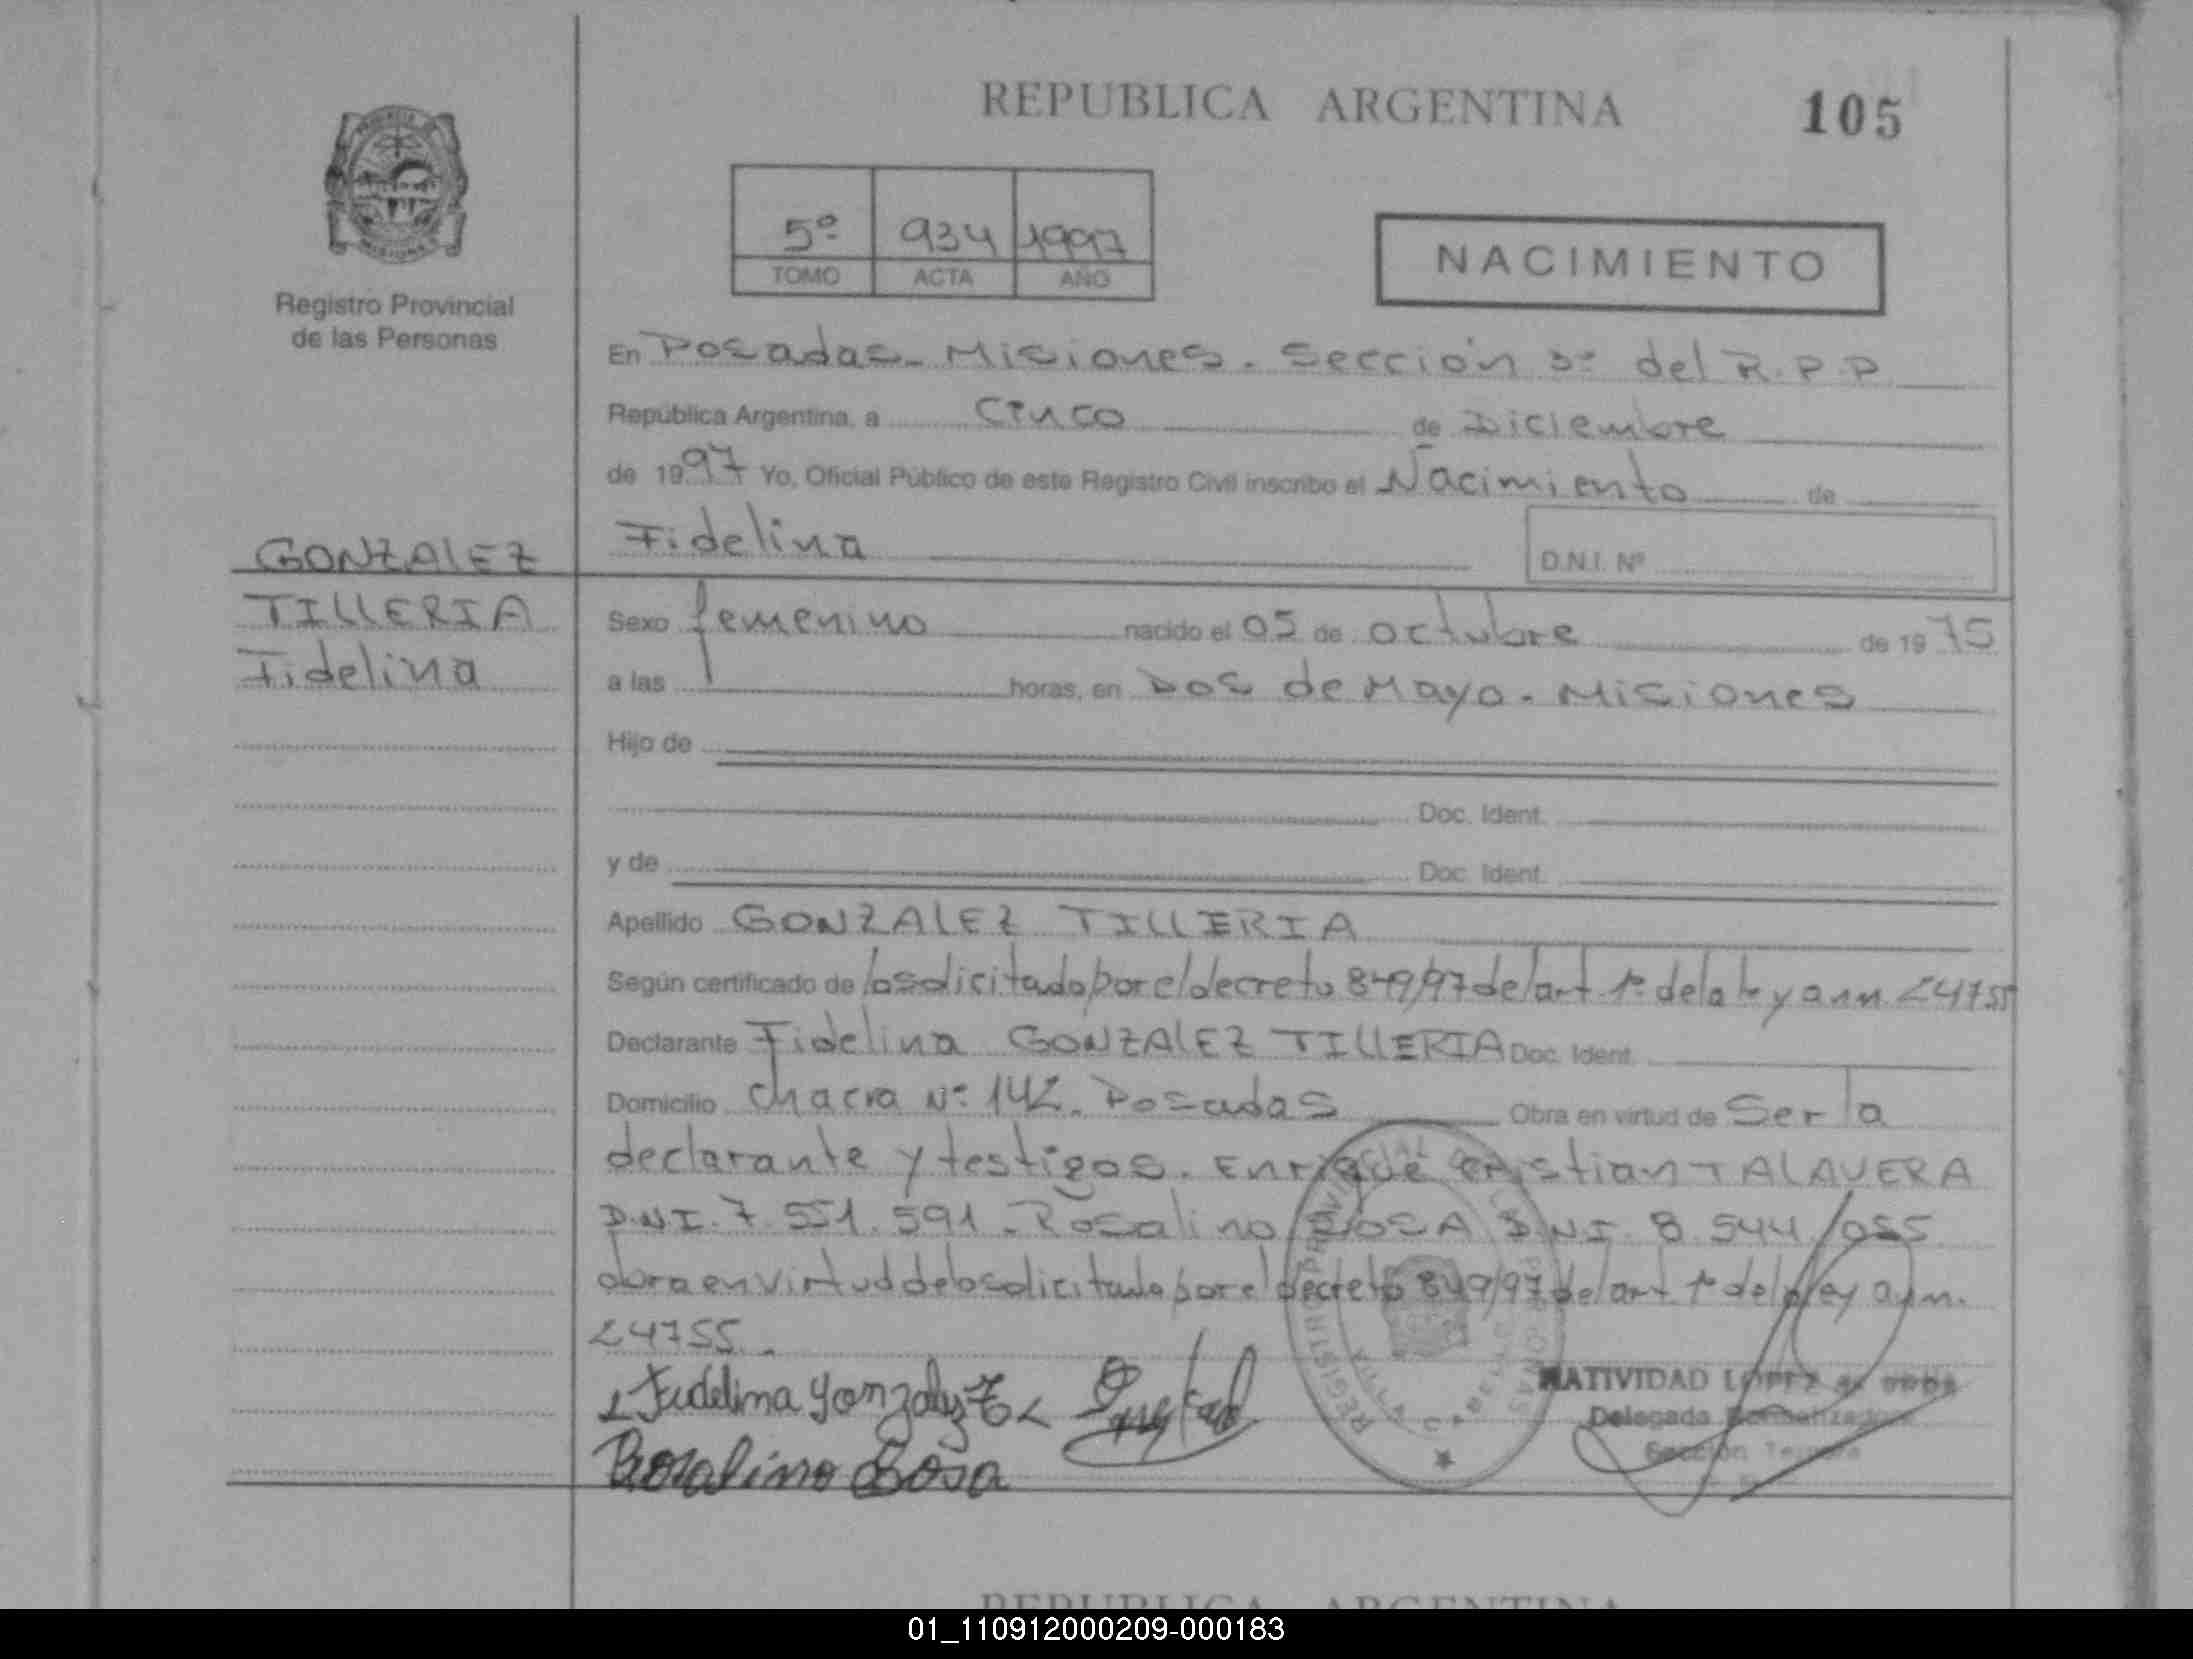 REPUBLICA ARGENTINA
105
5º 934 1997
TOMO ACTA AÑO
NACIMIENTO
Registro Provincial
de las Personas
En Posadas - Misiones. Sección 3º del R.P.P
República Argentina, a Cinco de Diciembre
de 1997 Yo, Oficial Público de este Registro Civil inscribo el Nacimiento de
Fidelina
D.N.I. Nº
GONZALEZ
TILLERIA
Fidelina
Sexo femenino nacido el 05 de octubre de 1975
a las horas, en Dos de Mayo. Misiones
Hijo de
Doc. Ident.
y de Doc. Ident.
Apellido GONZALEZ TILLERIA
Según certificado de lo solicitado por el decreto 849/97 del art. 1º de la ley a nn. 24755
Declarante Fidelina GONZALEZ TILLERIA Doc. Ident.
Domicilio Chacra Nº 142. Posadas Obra en virtud de Ser la
declarante y testigos. Enrique Cristian TALAVERA
D.N.I. 7.551.591. Rosalino SOSA D.N.I. 8.544.055
obra en virtud de lo solicitado por el decreto 849/97 del art. 1º de la ley a nn.
24755.
Fidelina Gonzalez T
Rosalino Sosa
REGISTRO PROVINCIAL
VILLA CABELLO
NATIVIDAD LOPEZ de
Delegada Normalizadora
Sección Tercera
REPUBLICA ARGENTINA
01_110912000209-000183